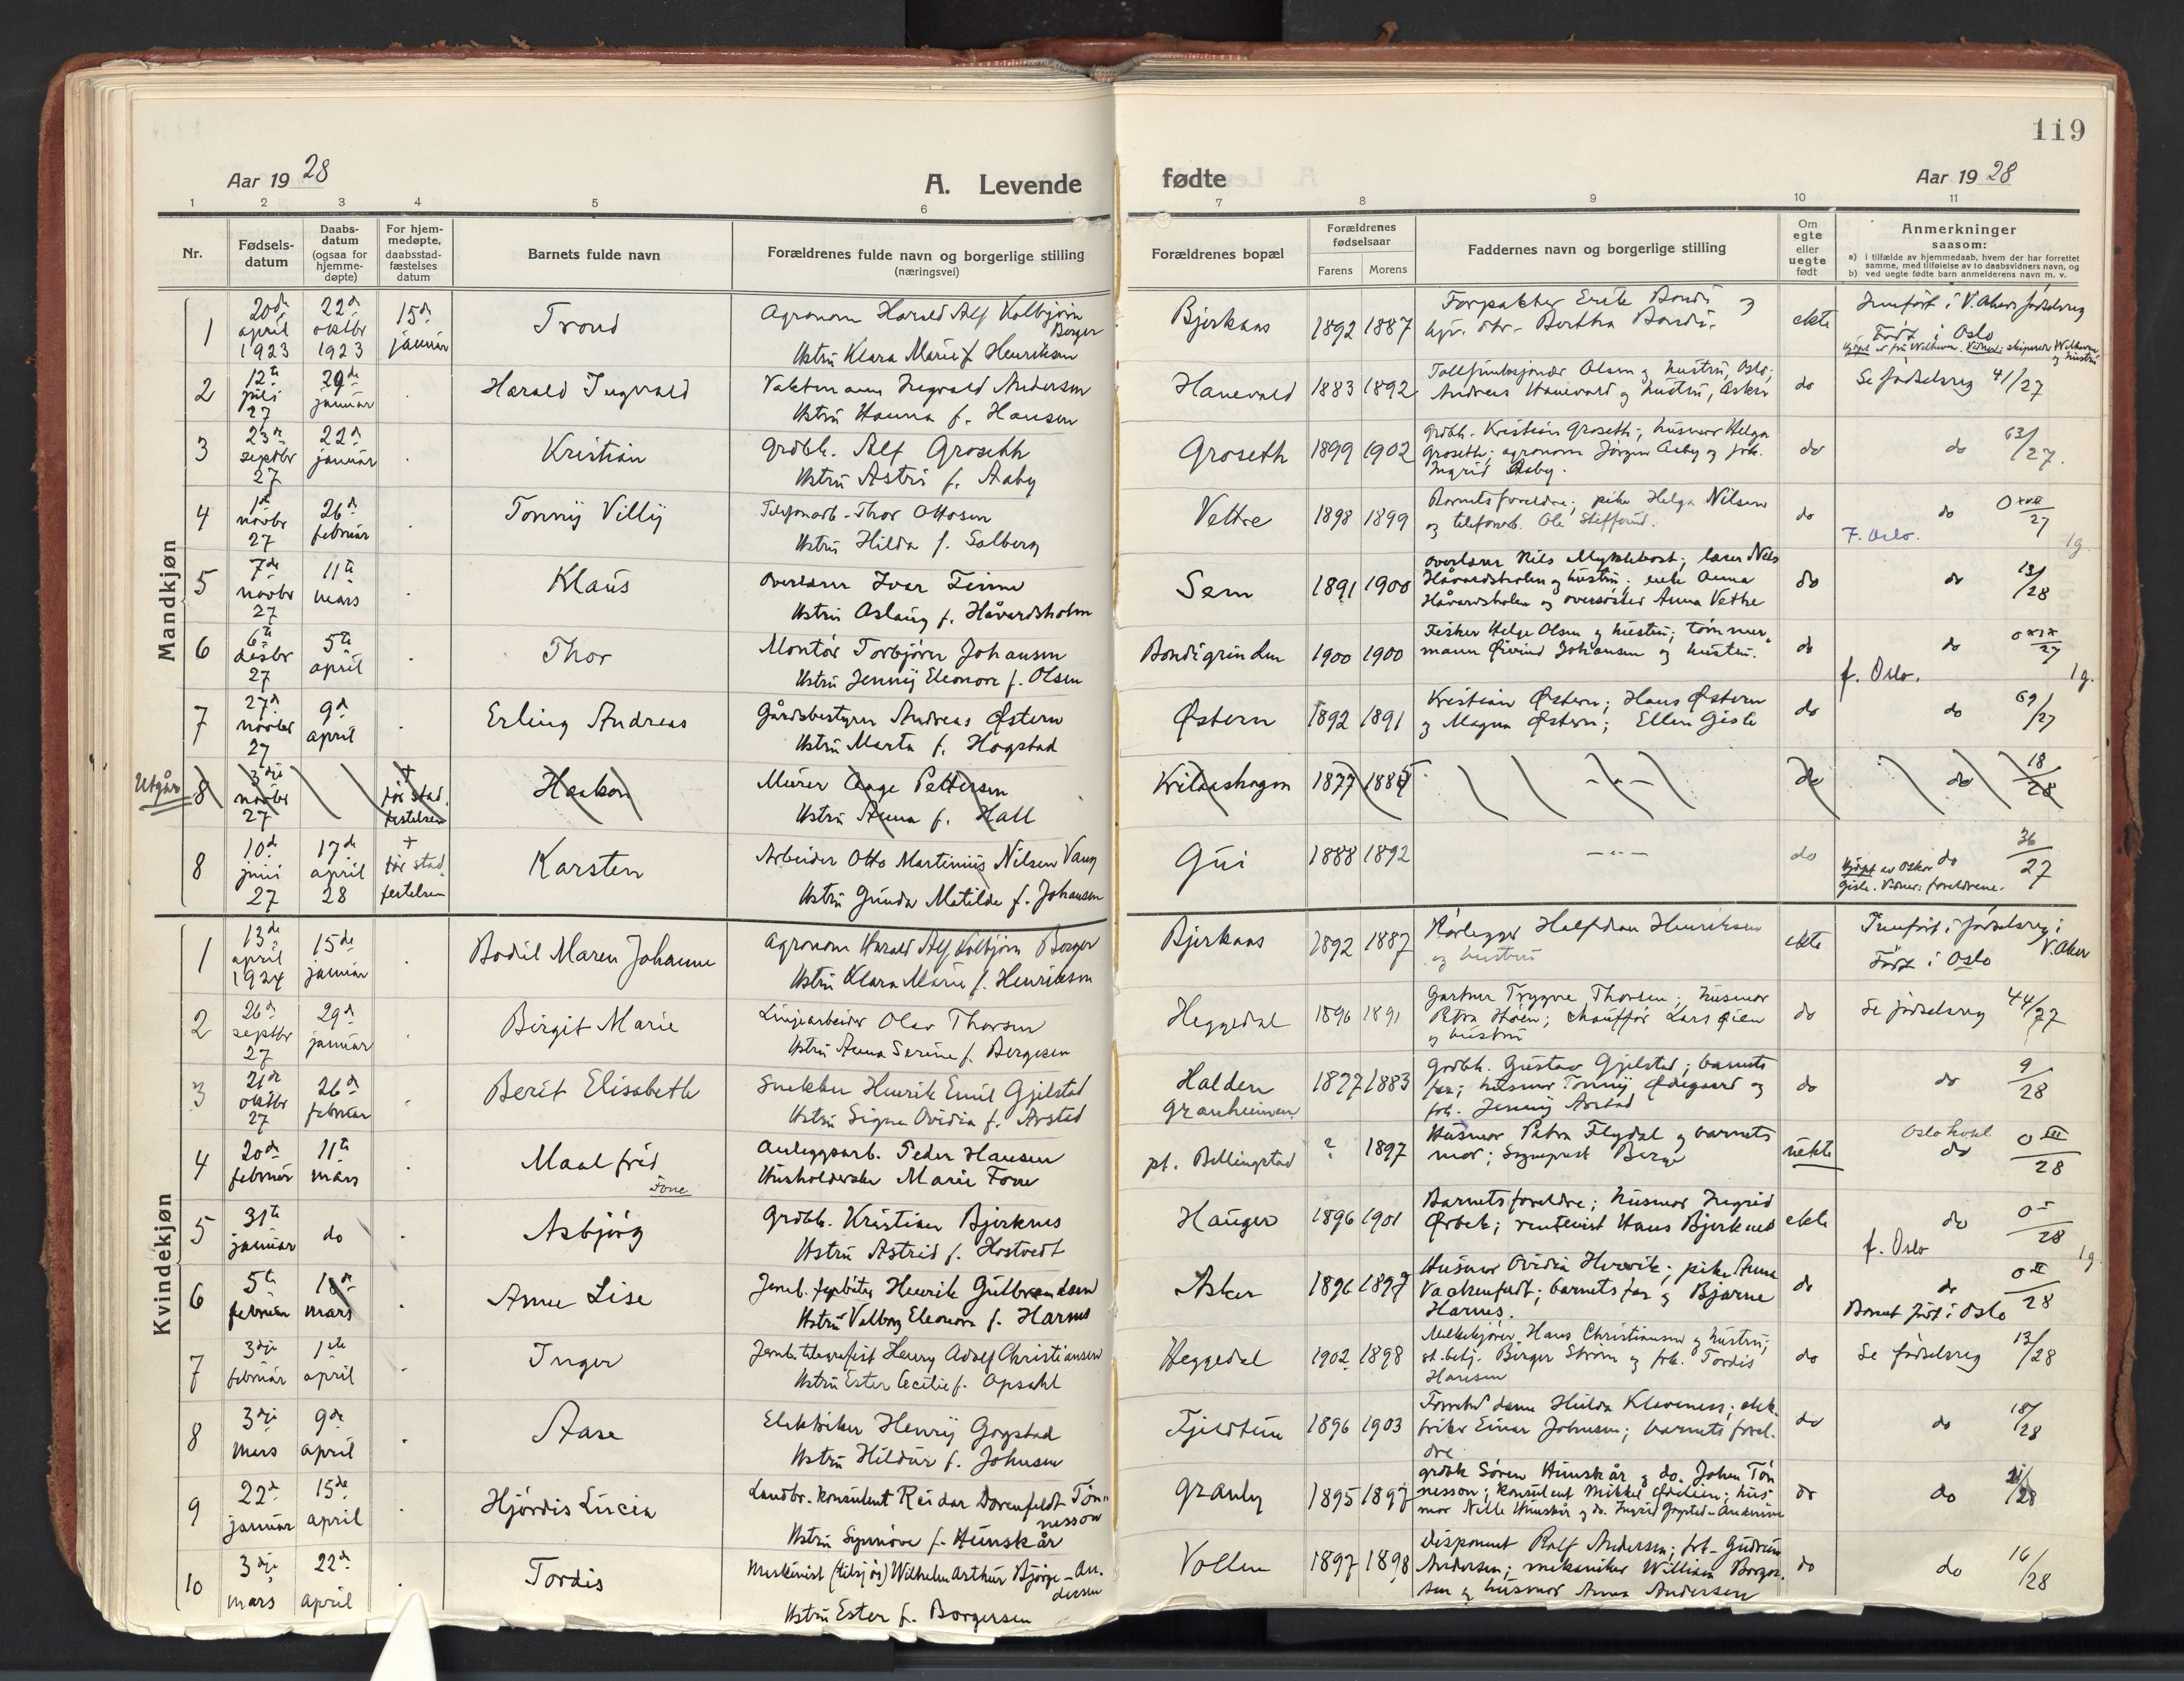 119
Aar 1928
A. Levende
fødte
Aar 1928
1 2 3 4 5 6 7 8 9 10 11
Nr.
Fødsels-
datum
Daabs-
datum
(ogsaa for
hjemme-
døpte)
For hjem-
medøpte,
daabsstad-
fæstelses
datum
Barnets fulde navn
Forældrenes fulde navn og borgerlige stilling
(næringsvei)
Forældrenes bopæl
Forældrenes
fødselsaar
Farens Morens
Faddernes navn og borgerlige stilling
Om
egte
eller
uegte
født
Anmerkninger
saasom:
a) i tilfælde av hjemmedaab, hvem der har forrettet
samme, med tilføielse av to daabsvidners navn, og
b) ved uegte fødte barn anmelderens navn m. v.
Mandkjøn
1
20de april 1923
22de oktbr 1923
15de januar
Trond
Agronom Harald Alf Kolbjørn Borger
Hstru Klara Marie f. Henriksen
Bjerkaas
1892 1887
Forpakter Erik Bondi og
Bertha Bondi.
ekte
Innført i V. Akers fødselsreg
Født i Oslo
2
12te juli 27
29de januar
Harald Ingvald
Vaktmann Ingvald Andersen
Hstru Hanna f. Hansen
Hanevold
1883 1892
Olsen og hustru, Oslo;
Andreas Hanevold og hustru, Asker
do
Se fødselsreg 41/27
3
23de septbr 27
22de januar
Kristian
Grdbk. Alf Groseth
Hstru Astri f. Aaby
Groseth
1899 1902
Grdbk. Kristian Groseth; husmor Helga
Groseth; agronom Jørgen Aaby og frk.
Ingrid Aaby.
do
do 63/27.
4
1ste novbr 27
26de februar
Tonny Villy
Telefonarb. Thor Ottosen
Hstru Hilda f. Solberg
Vettre
1898 1899
Barnets foreldre; pike Helga Nilsen
og telefonarb. Ole
do
do 27
F. Oslo.
1g.
5
7de novbr 27
11te mars
Klaus
Overlærer Ivar Finne
Hstru Aslaug f. Håvardsholm
Sem
1891 1900
Overlærer Nils Myklebost; lærer Nils
Håvardsholm og hustru; enke Anna
Håvardsholm og oversøster Anna Vettre
do
do 13/28
6
6te desbr 27
5te april
Thor
Montør Torbjørn Johansen
Hstru Jenny Eleonore f. Olsen
Bondigrinden
1900 1900
Fisker Helge Olsen og hustru; tømmer-
mann Øivind Johansen og hustru.
do
do 27
f. Oslo.
1g.
7
27de novbr 27
9de april
Erling Andreas
Gårdsbestyrer Andreas Østern
Hstru Marta f. Hogstad
Østern
1892 1891
Kristian Østern; Hans Østern
og Magna Østern; Ellen Gisle
do
do 69/27
Utgår
8
3dje novbr 27
† før stad.
festelsen
Haakon
Murer Aage Pettersen
Hstru Anna f. Hall
1877
do
do 18/28
8
10de juni 27
17de april 28
† før stad.
festelsen
Karsten
Arbeider Otto Martinius Nilsen Vang
Hstru Gunda Matilde f. Johansen
Gui
1888 1892
do
do 36/27
Hjdpt av Oskar
Gisle. Vidner: foreldrene.
Kvindekjøn
1
13de april 1924
15de januar
Bodil Maren Johanne
Agronom Harald Alf Kolbjørn Borger
Hstru Klara Marie f. Henriksen
Bjerkaas
1892 1887
Rørlegger Halfdan Henriksen
og hustru
ekte
Innført i fødselsreg i
V. Aker
Født i Oslo
2
26de septbr 27
29de januar
Birgit Marie
Linjearbeider Olav Thorsen
Hstru Anna Serine f. Bergesen
Heggedal
1896 1891
Gartner Trygve Thorsen; husmor
Petra; chauffør Lars Øien
og hustru
do
Se fødselsreg 44/27
3
21de oktbr 27
26de februar
Berit Elisabeth
Snekker Henrik Emil Gjelstad
Hstru Signe Ovidia f. Arstad
Halden
Granheimen
1877 1883
Grdbk. Gustav Gjelstad; barnets
far; husmor Tonny Ødegaard og
frk. Jenny Arstad
do
do 9/28
4
20de februar
11te mars
Maalfrid
Forre
Anleggsarb. Peder Hansen
Husholderske Marie Forre
pt. Billingstad
? 1897
Husmor Petra Flydal og barnets
mor; Sogneprest Berge
uekte
do 28
5
31te januar
do
Asbjørg
Grdbk. Kristian Bjerknes
Hstru Astrid f. Hostvedt
Hauger
1896 1901
Barnets foreldre; husmor Ingrid
Ørbek; rentenist Hans Bjerknes
ekte
do 28
f. Oslo
1g.
6
5te februar
mars
Anne Lise
Jernb. Henrik Gulbrandsen
Hstru Valborg Eleonora f. Harnes
Asker
1896 1897
Husmor Ovidia; pike Anna
barnets far og Bjarne
Harnes.
do
do 28
Barnet født i Oslo
7
3dje februar
1ste april
Inger
Jernb. telegrafist Henry Adolf Christiansen
Hstru Ester Cecilie f. Opsahl
Heggedal
1902 1898
Melkekjører Hans Christiansen og hustru;
st.betj. Birger Strøm og frk. Tordis
Hansen
do
Se fødselsreg 13/28
8
3dje mars
9de april
Aase
Elektriker Henry Gogstad
Hstru Hildur f. Johnsen
Fjeldtun
1896 1903
dame Hulda Klaveness; elek-
triker Einar Johnsen; barnets forel-
dre
do
do 18/28
9
22de januar
15de april
Hjørdis Lucia
Landbr. konsulent Reidar Dorenfeldt Tøn-
nesson
Hstru Synnøve f. Hunskår
Granly
1895 1897
grdbk Søren Hunskår og do. Johan Tøn
nesson; konsulent Mikkel; hus
mor Nelle Hunskår og do. Ingrid
do
do 28
10
3dje mars
22de april
Tordis
Maskinist (tilsjøs) Wilhelm Arthur Bjørge-An-
dersen
Hstru Ester f. Borgersen
Vollen
1897 1898
Disponent Rolf Andersen; frk. Gudrun
Andersen; mekaniker William Borger-
sen og husmor Anna Andersen
do
do 16/28